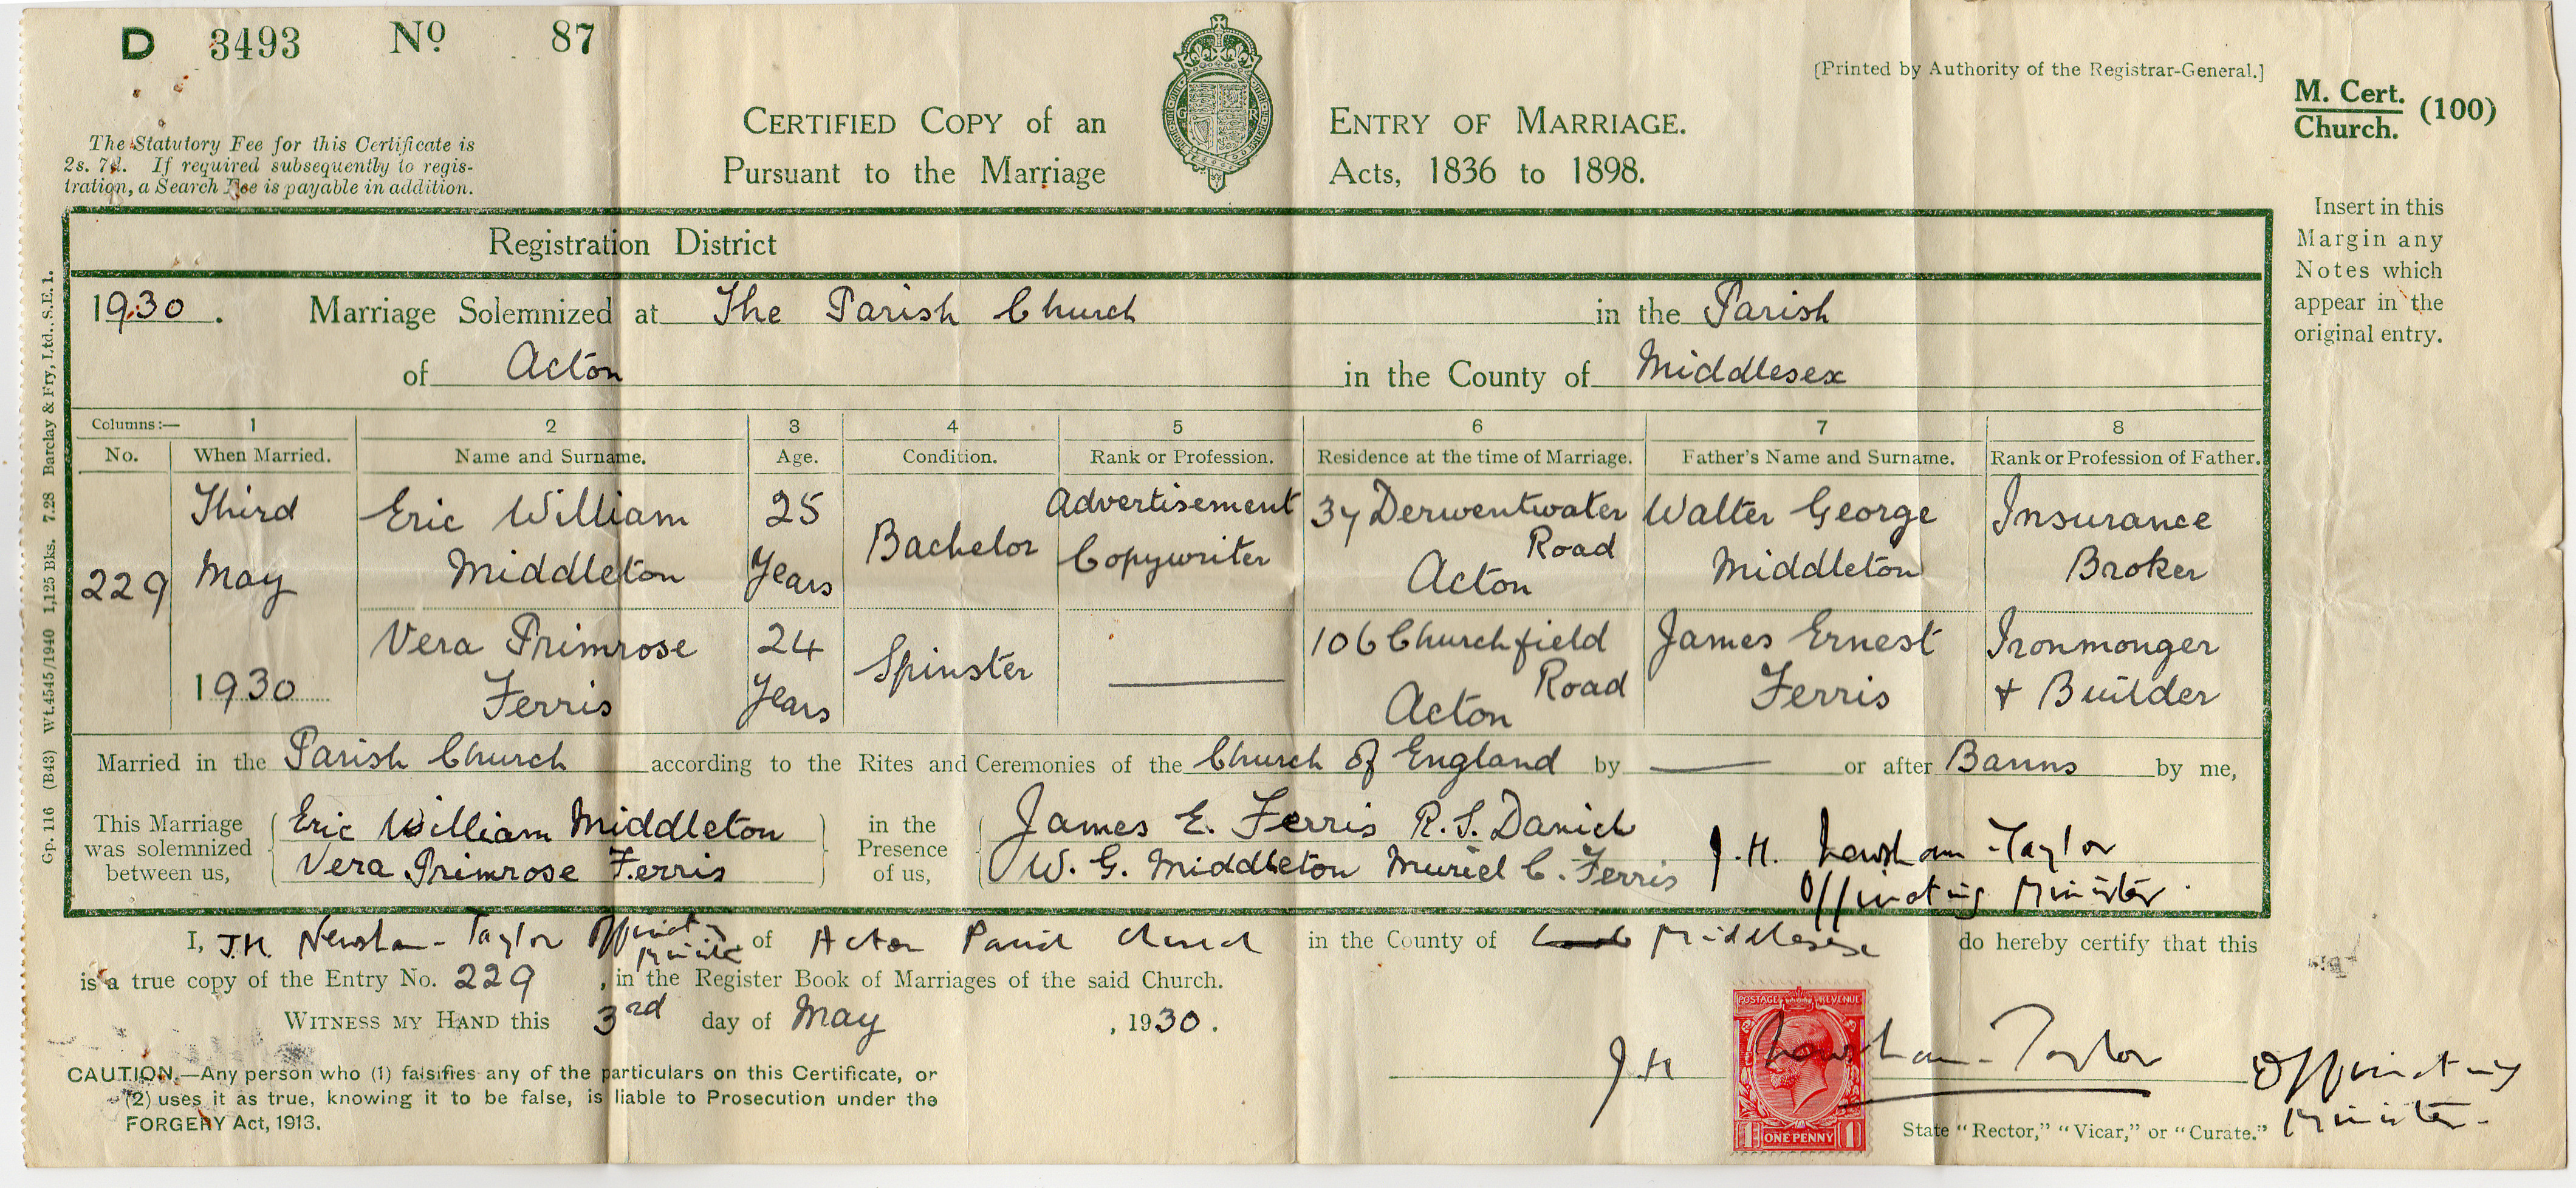 D 3493 No 87
[Printed by Authority of the Registrar-General.]
M. Cert. (100)
Church.
The Statutory Fee for this Certificate is
2s. 7d. If required subsequently to regis-
tration, a Search Fee is payable in addition.
CERTIFIED COPY of an ENTRY OF MARRIAGE.
Pursuant to the Marriage Acts, 1836 to 1898.
G R
Insert in this
Margin any
Notes which
appear in the
original entry.
Registration District
1930. Marriage Solemnized at The Parish Church in the Parish
of Acton in the County of Middlesex
Columns:— 1 2 3 4 5 6 7 8
No. When Married. Name and Surname. Age. Condition. Rank or Profession. Residence at the time of Marriage. Father's Name and Surname. Rank or Profession of Father.
229 Third May 1930
Eric William Middleton 25 Years Bachelor Advertisement Copywriter 37 Derwentwater Road Acton Walter George Middleton Insurance Broker
Vera Primrose Ferris 24 Years Spinster — 106 Churchfield Road Acton James Ernest Ferris Ironmonger + Builder
Married in the Parish Church according to the Rites and Ceremonies of the Church of England by — or after Banns by me,
This Marriage was solemnized between us,
Eric William Middleton
Vera Primrose Ferris
in the Presence of us,
James E. Ferris R. S. Daniel
W. G. Middleton Muriel C. Ferris
J. H. Newsham-Taylor
Officiating Minister.
I, J.H. Newsham-Taylor Officiating Minister of Acton Parish Church in the County of Middlesex do hereby certify that this
is a true copy of the Entry No. 229, in the Register Book of Marriages of the said Church.
WITNESS MY HAND this 3rd day of May, 1930.
CAUTION.—Any person who (1) falsifies any of the particulars on this Certificate, or
(2) uses it as true, knowing it to be false, is liable to Prosecution under the
FORGERY Act, 1913.
POSTAGE REVENUE
1 ONE PENNY 1
J. H. Newsham-Taylor Officiating
Minister.
State "Rector," "Vicar," or "Curate."
Gp. 116 (B43) Wt.4545/1940 1,125 Bks. 7.28 Barclay & Fry, Ltd., S.E.1.